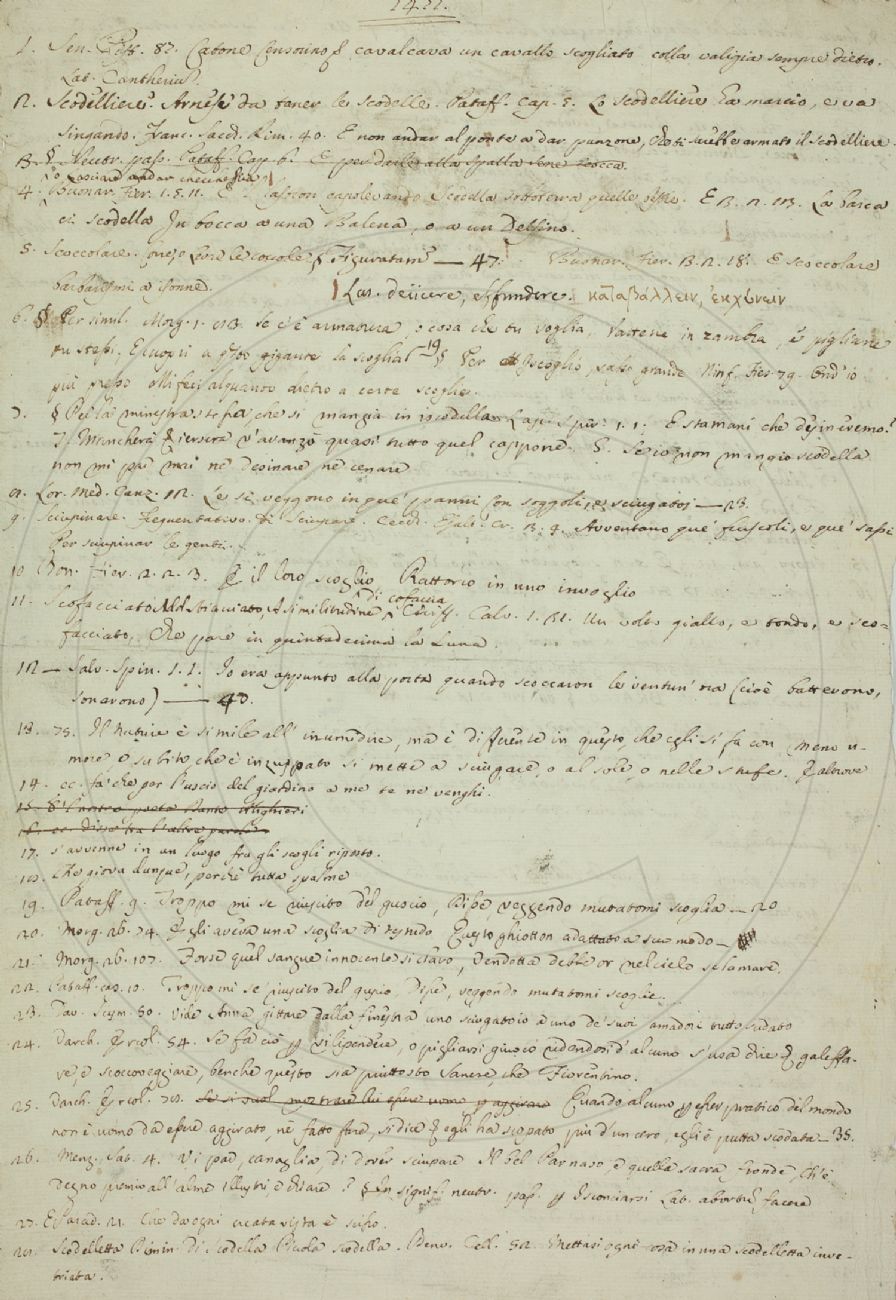 1422.
1. Sen. Pist. 87. Catone Censorino cavalcava un cavallo scogliato colla valigia sempre dietro.
Lat. Cantherius.
2. Scodelliere. Arnese da tener le scodelle. Pataff. Cap. 5. Lo scodelliere ha marcio, e va
singando. Franc. Sacch. Rim. 40. E non andar al ponte a dar punzone, armato il scodelliere.
3. § Neutr. pass. Pataff. Cap. alla spalla
lasciare andar
4. Buonar. Fier. 1. 5. 11. capolevando Scodella sottosopra quelle E 3. 2. 13. La barca
ci scodella In bocca a una Balena, o a un Delfino.
5. Scoccolare. le coccole § Figuratam — 47. Buonar. Fier. 3. 2. 18. E scoccolare
barbarismi a isonne.
Lat. deiicere, effundere. καταβάλλειν, ἐκχύνειν
6. § Per simil. Morg. 1. Se c'è armadura o cosa che tu voglia, Vattene in zambra, e pigliane
tu stessi, E cuopri a gigante la scoglia — 19 § Per iscoglio, sasso grande. Ninf. Fies. 79. Ond'io
più presso Mi feci alquanto dietro a certe scoglie.
7. § Per la minestra stessa, che si mangia in iscodella. 1. 1. E stamani che desineremo?
Mancherà iersera v'avanzò quasi tutto quel cappone. S. Se io non mangio scodella
non mi par mai nè desinare nè cenare
8. Lor. Med. Canz. 12. Le si veggono in que' panni Con soggoli, e sciugatoi — 23.
9. Sciupinare. Frequentativo di Sciupare. 3. 4. Avventano que' fruscoli, e que' sassi
Per sciupinar le genti.
10 Bon. Fier. 2. 2. 3. E il loro scoglio Rattorto in uno invoglio
11. Scofacciato. Add. Stiacciato, A similitudine di cofaccia. Ciriff. Calv. 1. 31. Un volto giallo, e tondo, e sco-
facciato, Che pare in quintadecima la Luna
12 — Salv. Spin. 1. 1. Io era appunto alla porta quando scoccaron le ventun'ora (cioè batterono,
sonarono) — 43.
13. 75. Il è simile all' ma è differente in questo, che egli si fa con meno u-
more e subito che è inzuppato si mette a sciugare, o al sole, o nelle stufe. E altrove
14. ec. fa che per l'uscio del giardino a me te ne venghi.
15. Il nostro poeta Dante Alighieri
16. ec. disse tra l'altre parole
17. s'avvenne in un luogo fra gli scogli riposto.
18. Che giova dunque, perchè tutta spalme
19. Pataff. 9. Troppo mi se riuscito del guscio, Dibe, veggendo mutatomi scoglia — 20
20. Morg. 26. 74. Egli aveva una scoglia di testudo Questo ghiotton adattata a suo modo —
21. Morg. 26. 107. Forse quel sangue innocente si Vendetta debbe or nel cielo sclamare.
22. Pataff. cap. 10. Troppo mi se riuscito del guscio, Dibe, veggendo mutatomi scoglie.
23. Tav. Scym. 50. vide Anna gittare dalla finestra uno sciugatoio a uno de' suoi amadori tutto sudato
24. Varch. Ercol. 54. Se fa ciò per vilipendere, o pigliarsi giuoco ridendosi d'alcuno s'usa dire E galeffa-
re, e scoccoveggiare, benchè questo sia piuttosto Sanese, che Fiorentino.
25. Varch. Ercol. 78. Quando alcuno per esser pratico del mondo
non è uomo da essere aggirato, nè fatto fare, si dice egli ha scopato più d'un cero, egli è putta scodata — 35.
26. Menz. Sat. 4. Vi par, canaglia, di dover sciupare Il bel Parnaso, e quella sacra fronde, Ch'è
degno premio all'alme illustri e chiare? § In signif. neutr. pass. per Isconciarsi Lat. abortum facere
27. E Parad. 21. Che da ogni creata vista è scisso.
28. Scodelletta Dimin. di Scodella Piccola scodella. Benv. Cell. 52. Mettasi ogni cosa in una scodelletta inve-
triata.